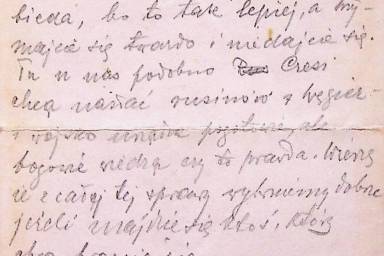 bieda, bo to tak lepiej, a trzy-
majcie się twardo i nie dajcie się.
Tu u nas podobno Czesi
chcą nasłać rusinów z węgier
i wojsko pogotowie, ale
bogowie wiedzą czy to prawda. Wierzę
że z całej tej sprawy wybrniemy dobrze
jeżeli znajdzie się ktoś, który
się